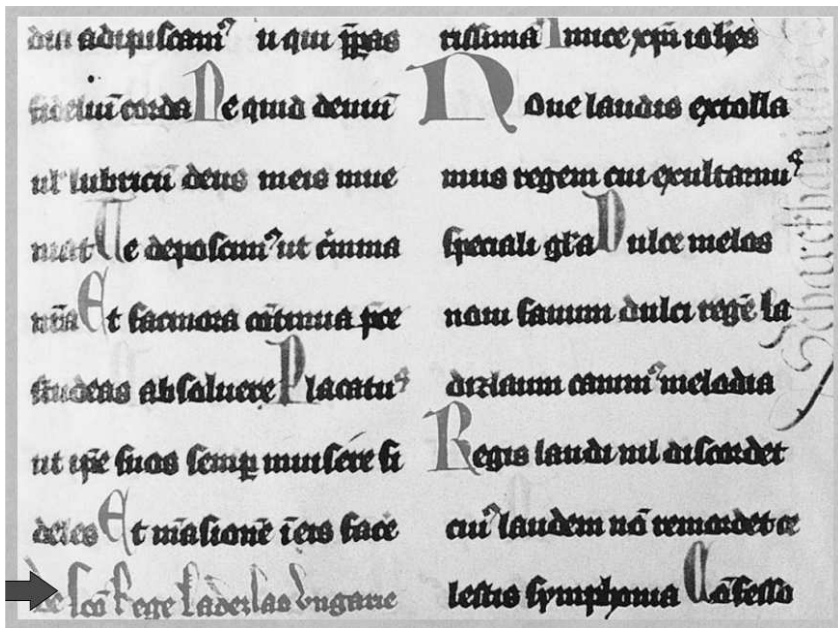 dui adipiscam᷒ u qui p̄pas
fideliū corda Ne quid deuiū
ul' lubricū deus meis mue
niat Te deposcim᷒ ut c̄mina
nr̄a Et facinora cōtinua p̄ce
studeas absoluere Placatu᷒
ut ip̄e suos semꝑ inuisere fi
deles Et māsionē ī eis face
de sc̄o Rege Ladezlao Vngarie
rissima Innuce xp̄i ioh̄es
Noue laudis extolla
mus regem cui exultamu᷒
speciali gl̄'a Dulce melos
noui fauum dulci regē la
dizlaum canim᷒ melodia
Regis laudi nil discordet
cui᷒ laudem nō remordet ce
lestis symphonia Cōfesso